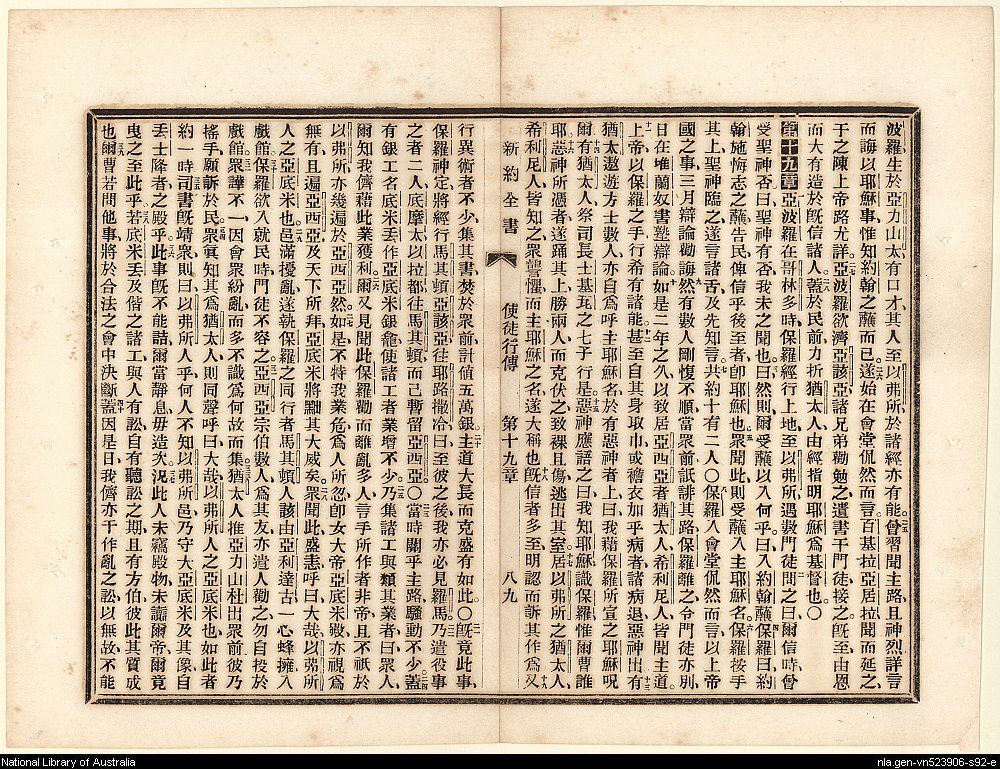 波羅生於亞力山太有口才其人至以弗所於諸經亦有能曾習聞主路且神烈詳言
而誨以耶穌事惟知約翰之蘸而已遂始在會堂侃然而言百基拉亞居拉聞而延之
于之陳上帝路尤詳亞波羅欲濟亞該亞諸兄弟勸勉之遺書于門徒接之旣至由恩
而大有造於旣信諸人蓋於民前力折猶太人由經指明耶穌爲基督也〇
第十九章亞波羅在哥林多時保羅經行上地至以弗所遇數門徒問之曰爾信時曾
受聖神否曰聖神有否我未之聞也曰然則爾受蘸以入何乎曰入約翰蘸保羅曰約
翰施悔志之蘸告民俾信乎後至者卽耶穌也衆聞此則受蘸入主耶穌名保羅按手
其上聖神臨之遂言諸舌及先知言共約十有二人〇保羅入會堂侃然而言以上帝
國之事三月辯論勸誨然有數人剛愎不順當衆前詆誹其路保羅離之令門徒亦別
日在堆蘭奴書塾辯論如是二年之久以致居亞西亞者猶太人希利尼人皆聞主道
上帝以保羅之手行希有諸能甚至自其身取巾或襜衣加乎病者諸病退惡神出有
猶太遨遊方士數人亦自爲呼主耶穌名於有惡神者上曰我藉保羅所宣之耶穌呪
爾有猶太人祭司長士基瓦之七子行是惡神應語之曰我知耶穌識保羅惟爾曹誰
耶惡神所憑者遂踊其上勝兩人而克伏之致裸且傷逃出其室居以弗所之猶太人
希利尼人皆知之衆讋懼而主耶穌之名遂大稱也旣信者多至明認而訴其作爲又
新約全書 使徒行傳 第十九章 八九
行異術者不少集其書焚於衆前計値五萬銀主道大長而克盛有如此〇旣竟此事
保羅神定將經行馬其頓亞該亞往耶路撒冷曰至彼之後我亦必見羅馬乃遣役事
之者二人底摩太以拉都往馬其頓而己暫留亞西亞〇當時關乎主路騷動不少蓋
有銀工名底米丢作亞底米銀龕使諸工者業增不少乃集諸工與類其業者曰衆人
爾知我儕藉此業獲利爾又見聞此保羅勸而離亂多人言手所作者非帝且不祇於
以弗所亦幾遍於亞西亞然如是不特我業危爲人所忽卽女大帝亞底米殿亦視爲
無有且遍亞西亞及天下所拜亞底米將黜其大威矣衆聞此盛恚呼曰大哉以弗所
人之亞底米也邑滿擾亂遂執保羅之同行者馬其頓人該由亞利達古一心蜂擁入
戲館保羅欲入就民時門徒不容之亞西亞宗伯數人爲其友亦遣人勸之勿自投於
戲館衆譁不一因會衆紛亂而多不識爲何故而集猶太人推亞力山杜出衆前彼乃
搖手願訴於民衆寘知其爲猶太人則同聲呼曰大哉以弗所人之亞底米也如此者
約一時司書旣靖衆則曰以弗所人乎何人不知以弗所邑乃守大亞底米及其像自
丢士降者之殿乎此事旣不能詰爾當靜息毋造次況此人未竊殿物未讟爾帝爾竟
曳之至此乎若底米丢及偕之諸工與人有訟自有聽訟之期且有方伯彼此其質成
也爾曹若問他事將於合法之會中決斷蓋因是日我儕亦干作亂之訟以無故不能
National Library of Australia
nla.gen-vn523906-s92-e